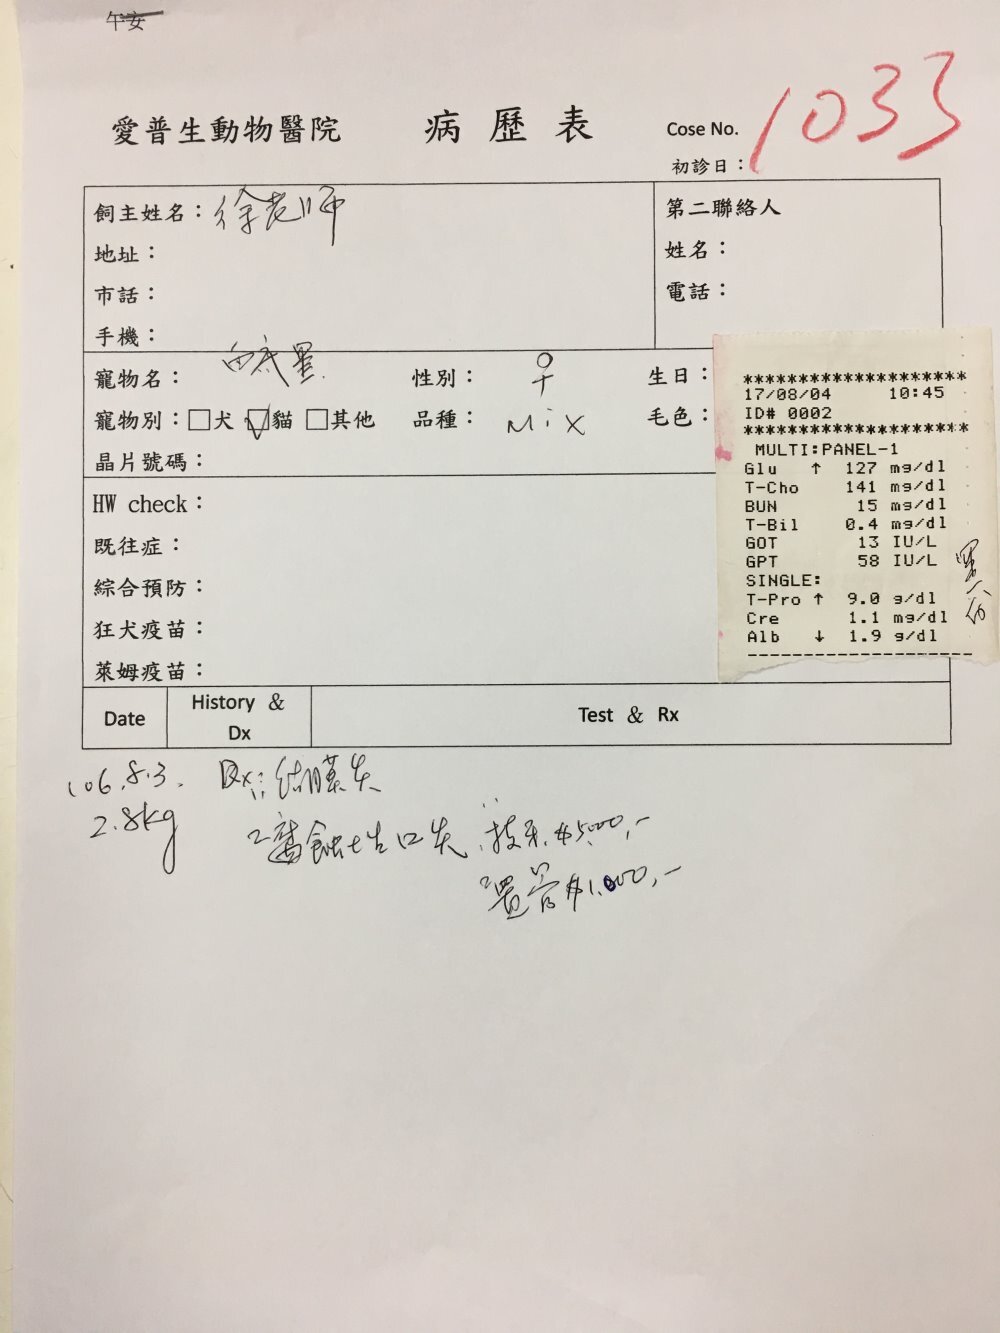 午安
愛普生動物醫院 病歷表 Cose No. 1033
初診日：
飼主姓名：徐老師
地址：
市話：
手機：
第二聯絡人
姓名：
電話：
寵物名： 西底里
性別： ♀
生日：
寵物別：□犬 ☑貓 □其他 品種： Mix 毛色：
晶片號碼：
HW check：
既往症：
綜合預防：
狂犬疫苗：
萊姆疫苗：
********************
17/08/04 10:45
ID# 0002
********************
MULTI:PANEL-1
Glu ↑ 127 mg/dl
T-Cho 141 mg/dl
BUN 15 mg/dl
T-Bil 0.4 mg/dl
GOT 13 IU/L
GPT 58 IU/L
SINGLE:
T-Pro ↑ 9.0 g/dl
Cre 1.1 mg/dl
Alb ↓ 1.9 g/dl
--------------------
Date History & Dx Test & Rx
106.8.3. Dx: 結膜炎
2.8kg 2. 腐蝕性口炎 拔牙 $5000,-
2. 置管 $1,000,-